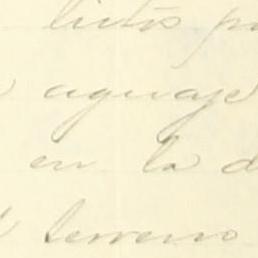 listos
aguaje
en la d
terreno